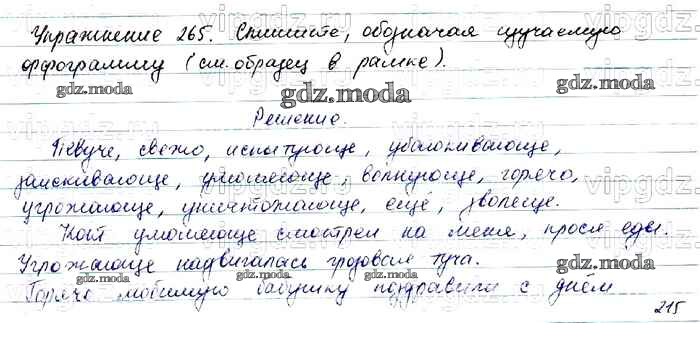 Упражнение 265. Спишите, обозначая изучаемую
орфограмму (см. образец в рамке).
gdz.moda
gdz.moda
Решение.
Певуче, свежо, испытующе, убаюкивающе,
заискивающе, умоляюще, волнующе, горячо,
угрожающе, уничтожающе, ещё, зловеще.
Кот умоляюще смотрел на меня, прося еды.
Угрожающе надвигалась грозовая туча.
gdz.moda
gdz.moda
gdz.moda
Горячо любимую бабушку поздравили с днём
215